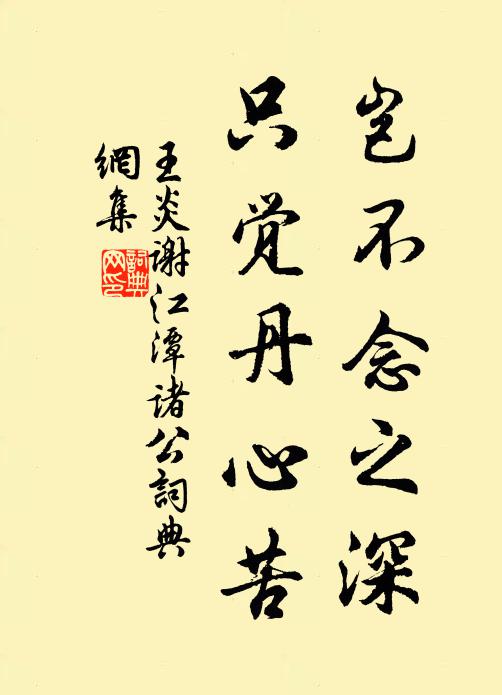 岂不念之深
只觉丹心苦
王炎谢江潭诸公词典
網集
詞典
网印